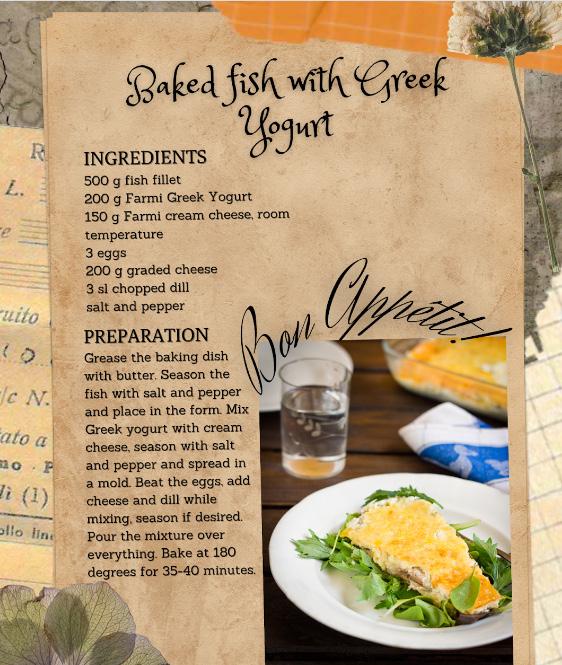 Baked fish with Greek
Yogurt
INGREDIENTS
500 g fish fillet
200 g Farmi Greek Yogurt
150 g Farmi cream cheese, room
temperature
3 eggs
200 g graded cheese
3 sl chopped dill
salt and pepper
Bon Appétit!
PREPARATION
Grease the baking dish
with butter. Season the
fish with salt and pepper
and place in the form. Mix
Greek yogurt with cream
cheese, season with salt
and pepper and spread in
a mold. Beat the eggs, add
cheese and dill while
mixing, season if desired.
Pour the mixture over
everything. Bake at 180
degrees for 35-40 minutes.